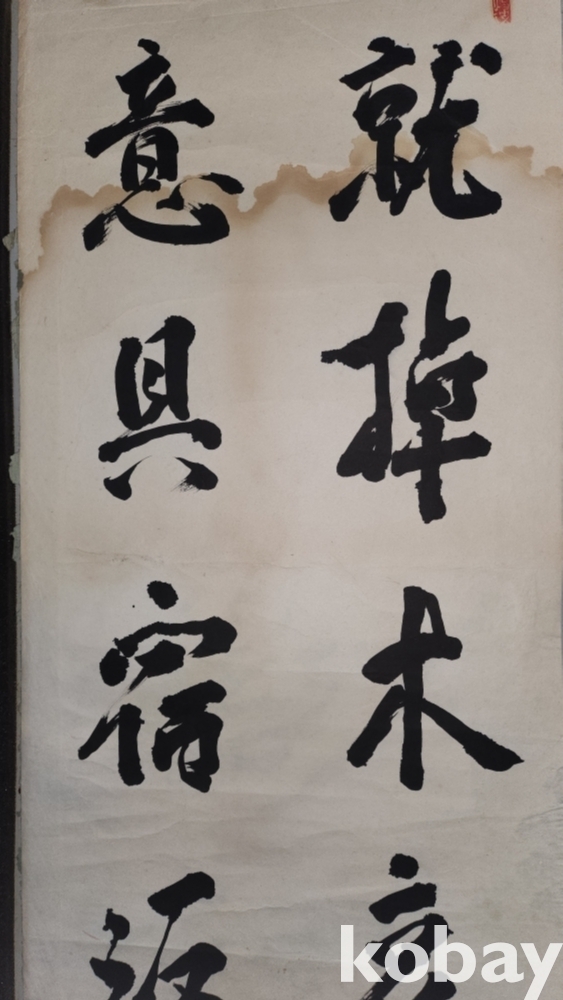 就掉木
意具宿
kobay